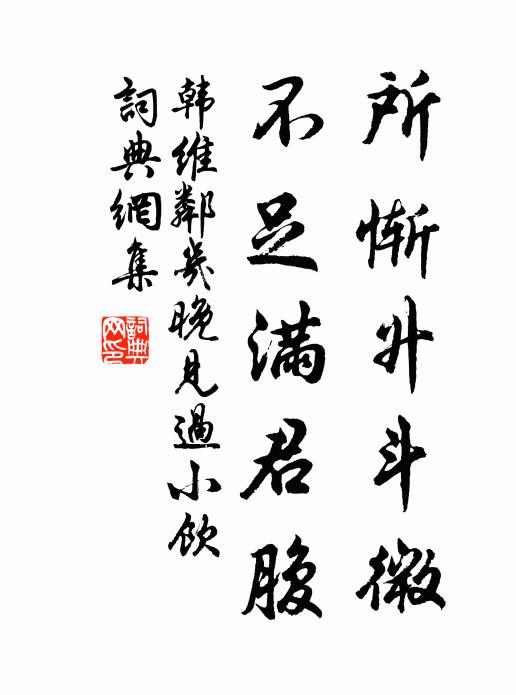 所慚升斗微
不足滿君腹
韩維鄰幾晚見過小飲
詞典網集
詞典
网印